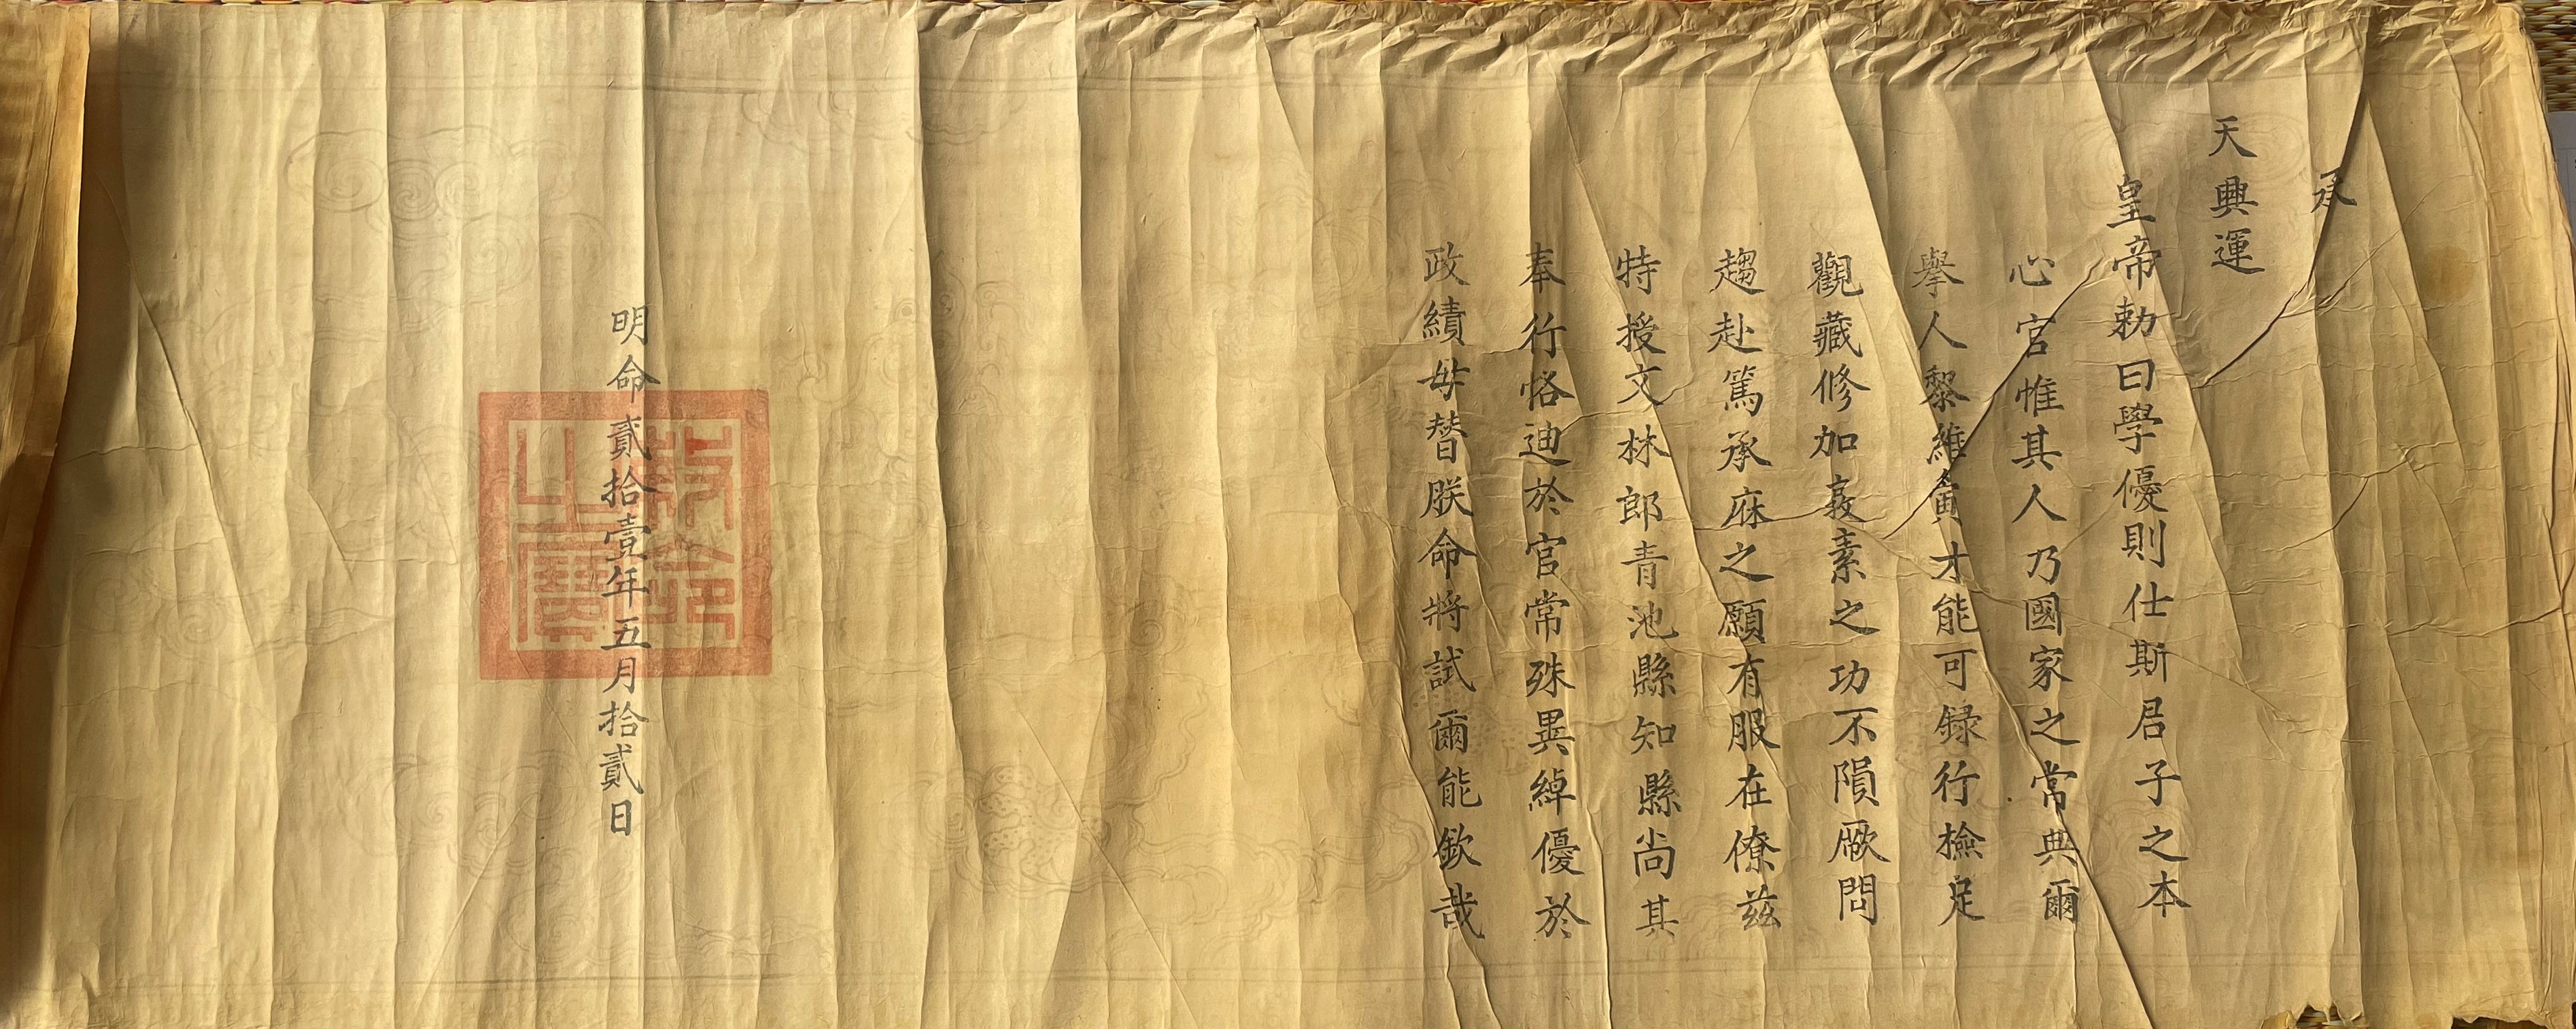 承
天興運
皇帝勅曰學優則仕斯君子之本
心官惟其人乃國家之常典爾
擧人黎維寅才能可録行檢足
觀藏修加敦素之功不隕厥問
趨赴篤承庥之願有服在僚茲
特授文林郎青池縣知縣尚其
奉行恪迪於官常殊異綽優於
政績毋替朕命將試爾能欽哉
明命貳拾壹年五月拾貳日
敕命之寶